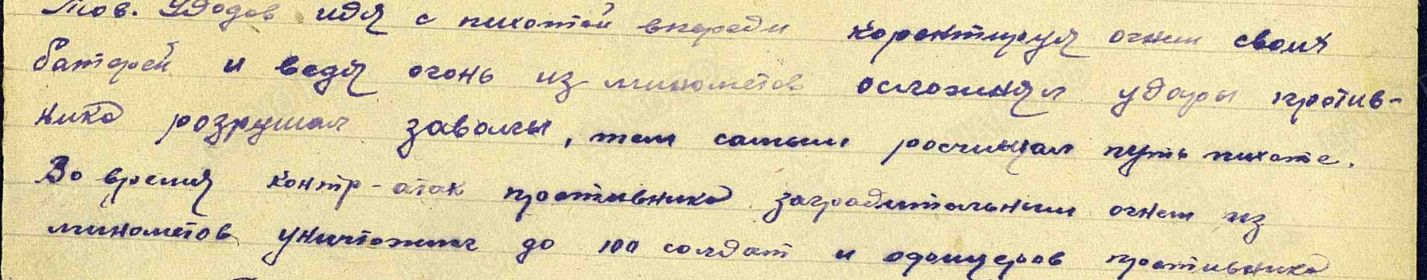 Тов. Удодов идя с пихотой впереди коректируя огнем своих
батарей и ведя огонь из минометов осложнял удары против-
ника розрушал завалы, тем самым росчищал путь пихоте.
Во время контр-атак противника заградительным огнем из
минометов уничтожил до 100 солдат и офицеров противника